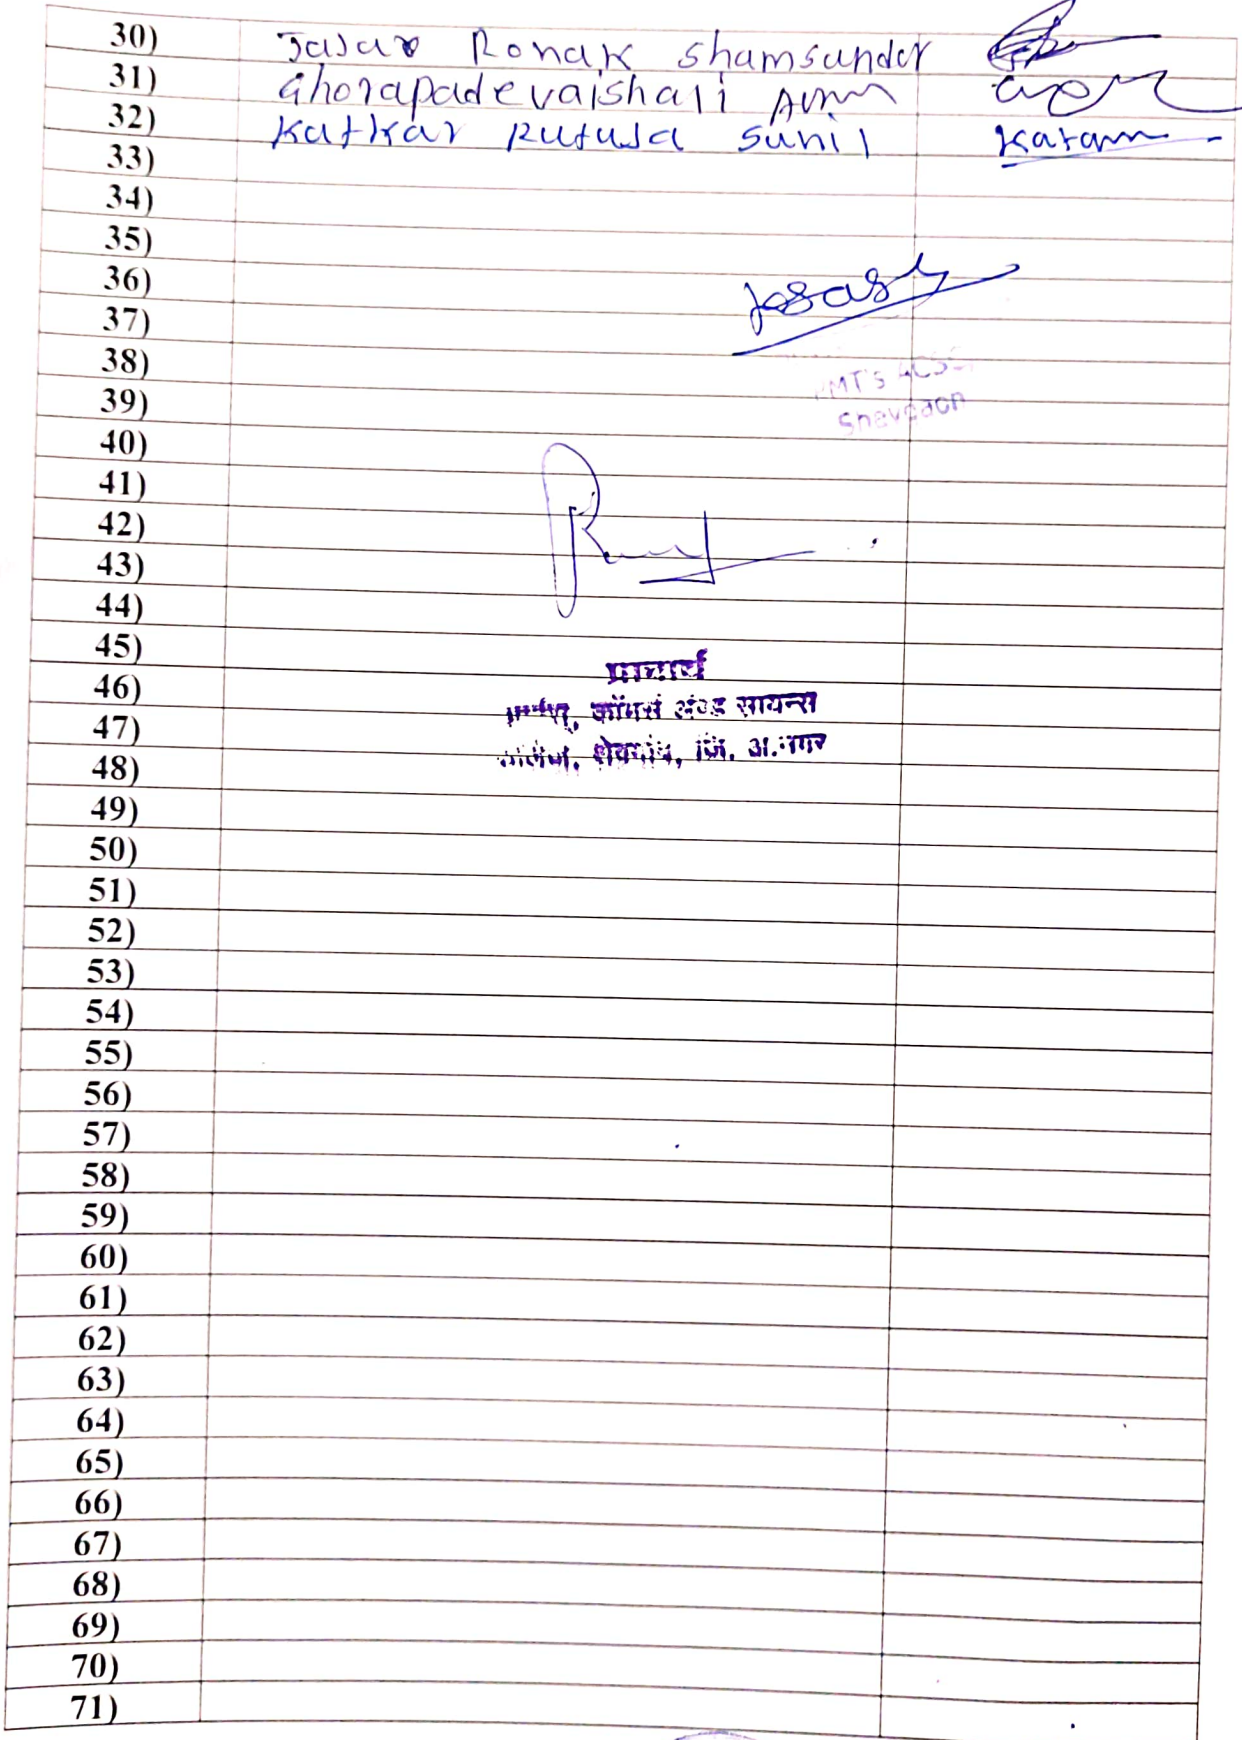 30) Jajar Ronak shamsunder
31) Ghorapade vaishali
32) Katkar Rutuja Sunil
33)
34)
35)
36)
37)
38)
39)
40)
41)
42)
43)
44)
45)
46)
47)
48)
49)
50)
51)
52)
53)
54)
55)
56)
57)
58)
59)
60)
61)
62)
63)
64)
65)
66)
67)
68)
69)
70)
71)
प्राचार्य
कॉमर्स अॅण्ड सायन्स
शेवगांव, जि. अ.नगर